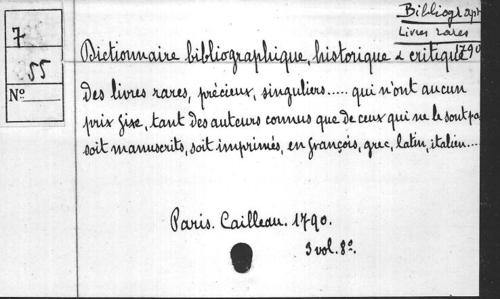 Bibliograph
Livres rares
7
55
Nº
Dictionnaire bibliographique, historique & critique 1790
Des livres rares, précieux, singuliers..... qui n'ont aucun
prix fixe, tant des auteurs connus que de ceux qui ne le sont pa
soit manuscrits, soit imprimés, en françois, grec, latin, italien....
Paris. Cailleau. 1790.
3 vol. 8º.